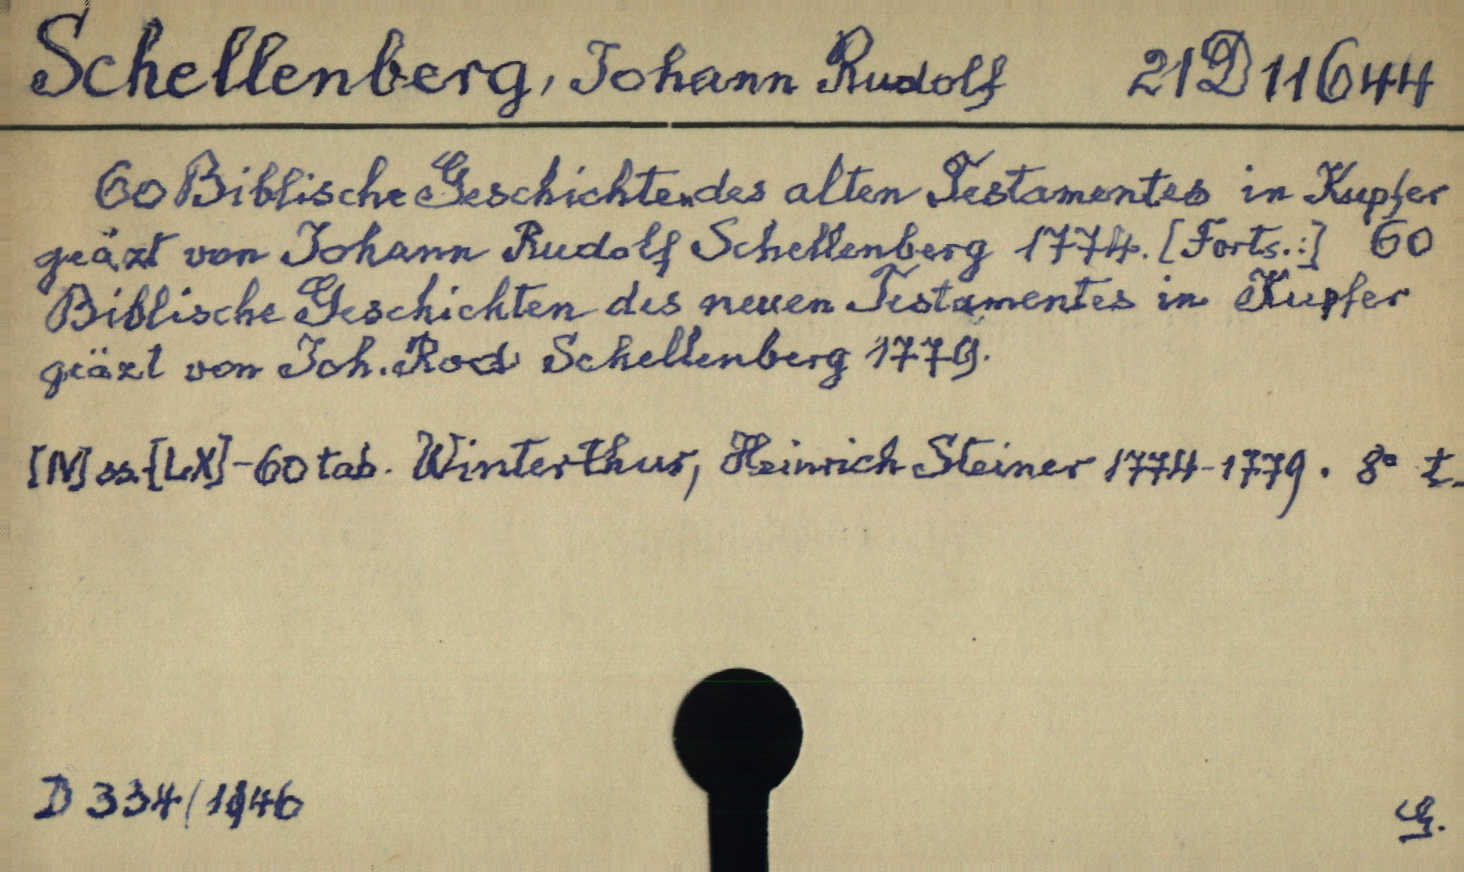 Schellenberg, Johann Rudolf 21D11644
60 Biblische Geschichten des alten Testamentes in Kupfer
geäzt von Johann Rudolf Schellenberg 1774. [Forts.:] 60
Biblische Geschichten des neuen Testamentes in Kupfer
geäzt von Joh. Rod Schellenberg 1779.
[IV] ss. [LX] - 60 tab. Winterthur, Heinrich Steiner 1774-1779. 8° t.
D 334/1946